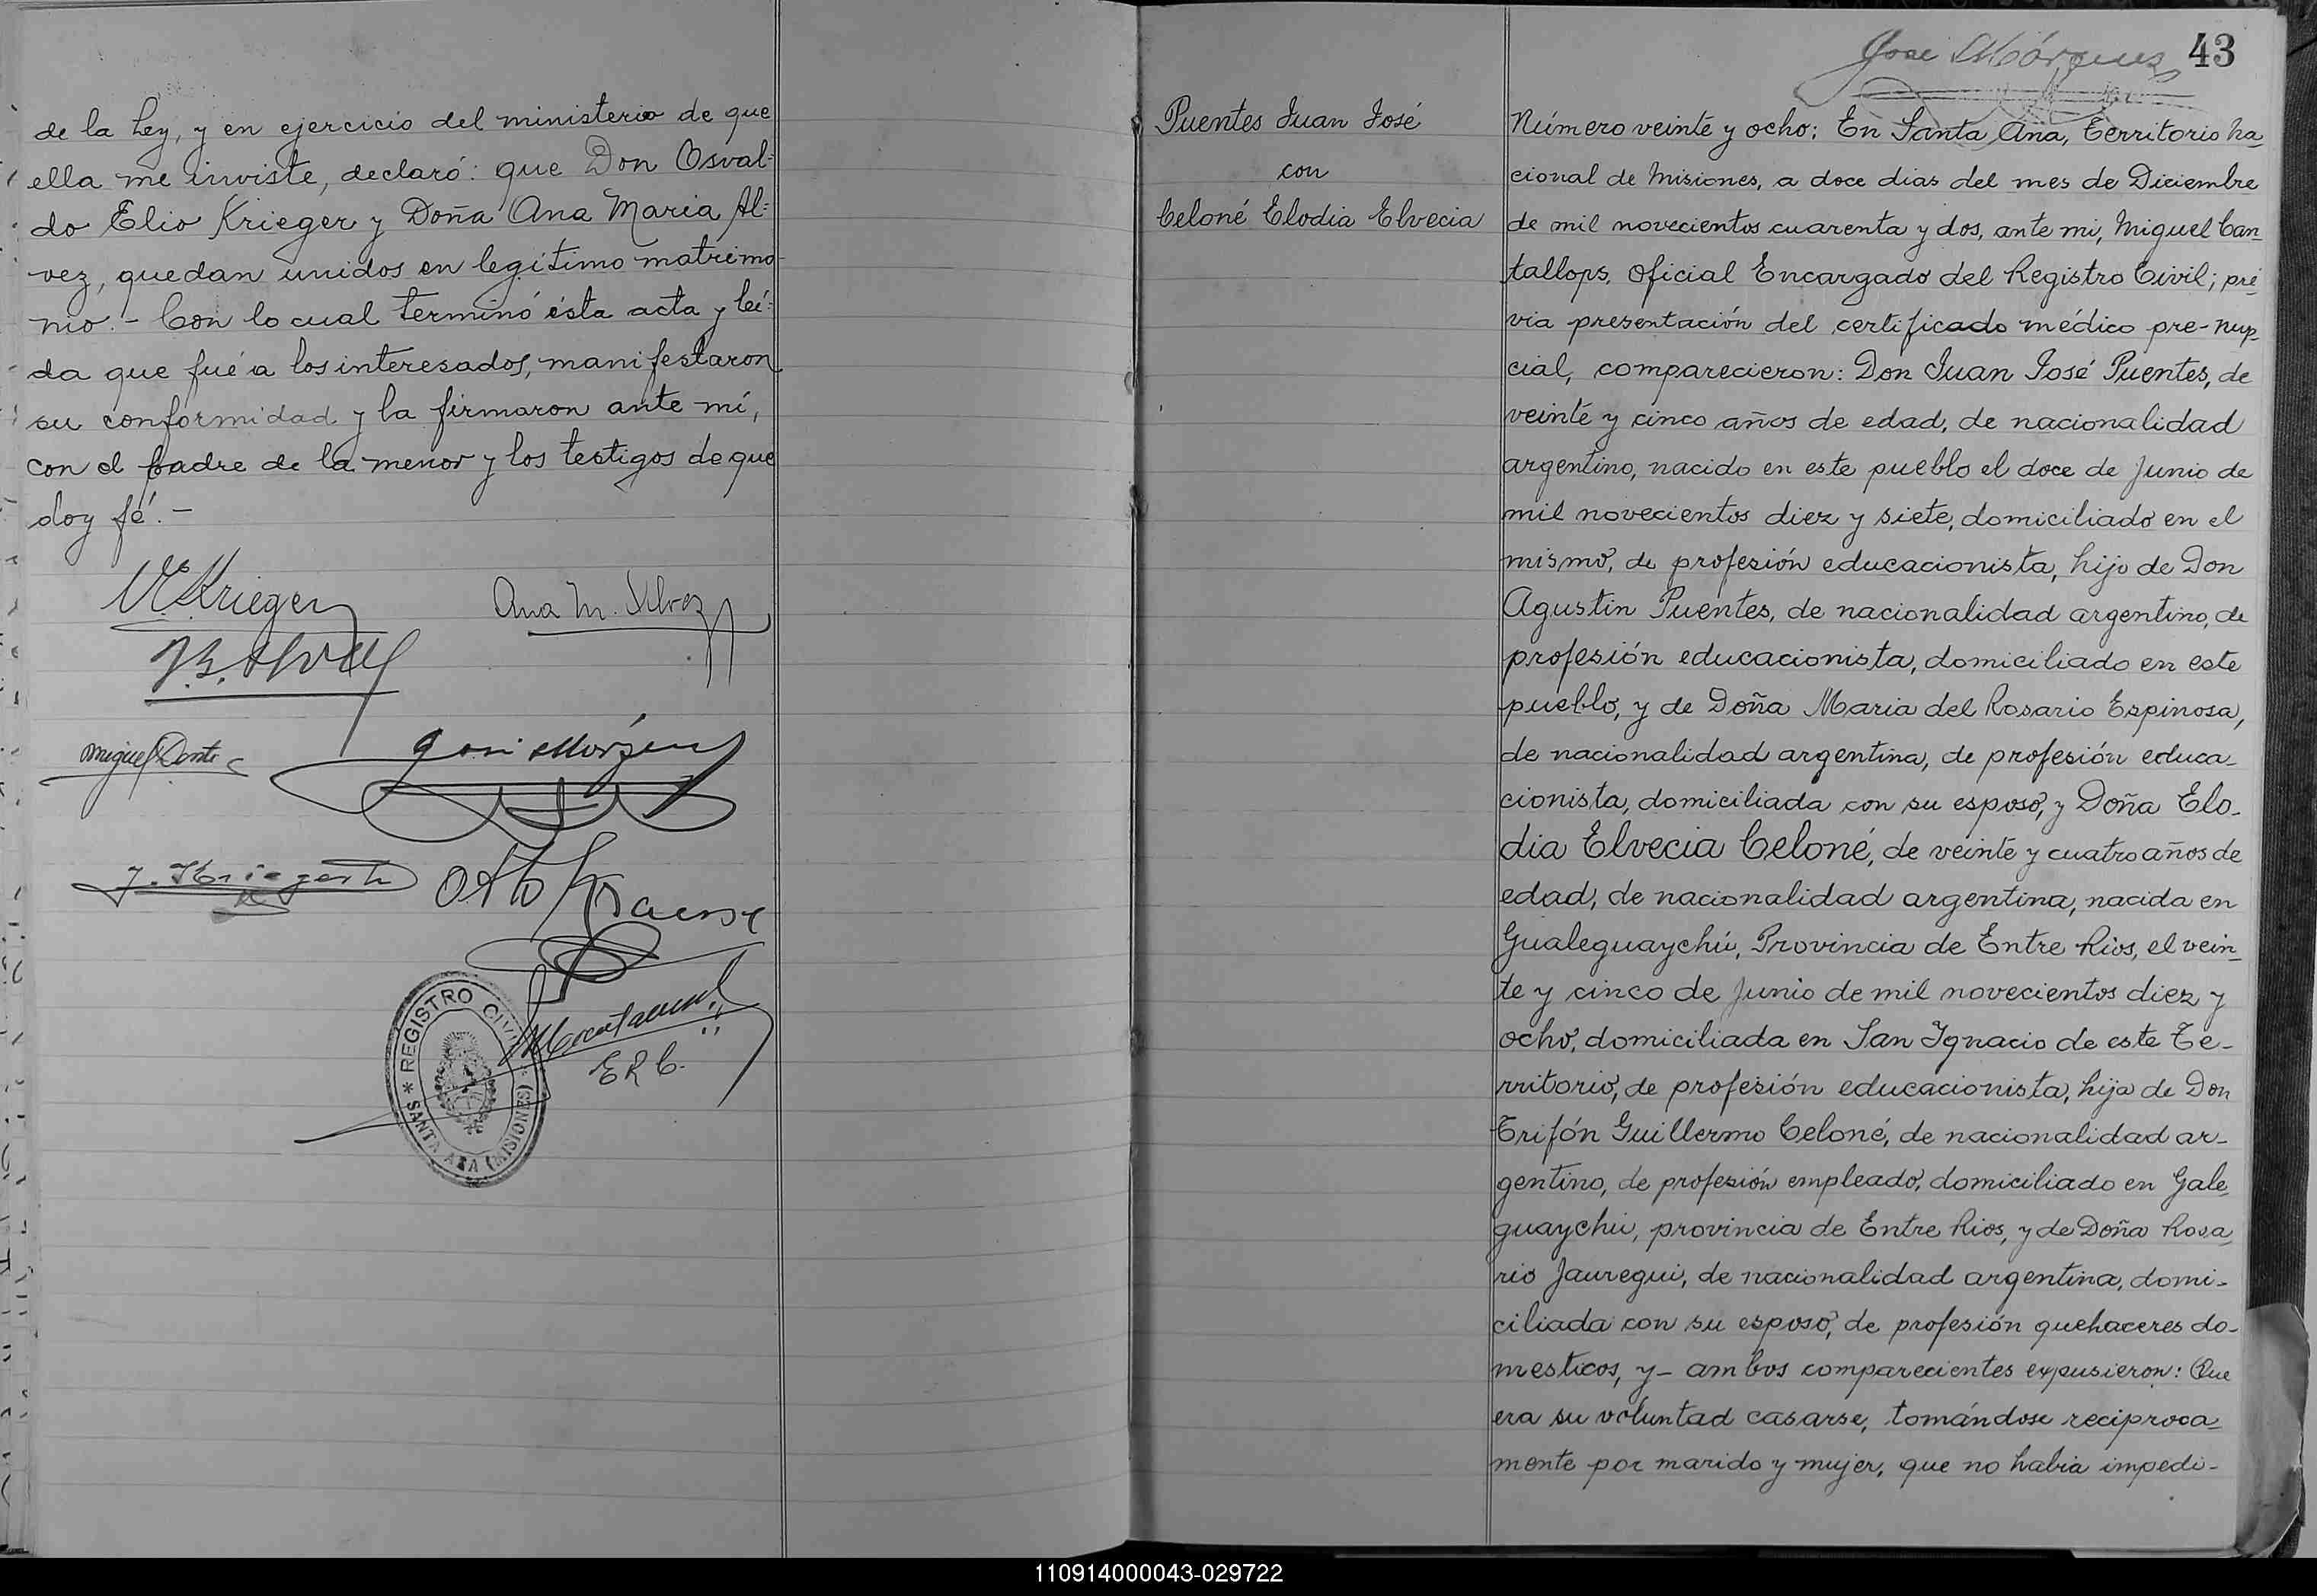 de la Ley, y en ejercicio del ministerio de que
ella me inviste, declaró: que Don Osval=
do Elio Krieger y Doña Ana Maria Al=
vez, quedan unidos en legítimo matrimo-
nio.- Con lo cual terminó ésta acta y leí=
da que fué a los interesados, manifestaron
su conformidad y la firmaron ante mí,
con el padre de la menor y los testigos de que
doy fé.-
Krieger
Ana M. Alvez
J.B. Alvez
Miguel Dente
José Márquez
Otto Krause
E R C.
REGISTRO CIVIL
SANTA ANA (MISIONES)
José Márquez
43
Puentes Juan José
con
Celoné Elodia Elvecia
Número veinte y ocho; En Santa Ana, Territorio Na
cional de Misiones, a doce dias del mes de Diciembre
de mil novecientos cuarenta y dos, ante mi, Miguel Can_
tallops, Oficial Encargado del Registro Civil; pré_
via presentación del certificado médico pre-nup_
cial, comparecieron: Don Juan José Puentes, de
veinte y cinco años de edad, de nacionalidad
argentino, nacido en este pueblo el doce de Junio de
mil novecientos diez y siete, domiciliado en el
mismo, de profesión educacionista, hijo de Don
Agustin Puentes, de nacionalidad argentino, de
profesión educacionista, domiciliado en este
pueblo, y de Doña Maria del Rosario Espinosa,
de nacionalidad argentina, de profesión educa_
cionista, domiciliada con su esposo, y Doña Elo_
dia Elvecia Celoné, de veinte y cuatro años de
edad, de nacionalidad argentina, nacida en
Gualeguaychú, Provincia de Entre Rios, el vein_
te y cinco de Junio de mil novecientos diez y
ocho, domiciliada en San Ignacio de este Te_
rritorio, de profesión educacionista, hija de Don
Trifón Guillermo Celoné, de nacionalidad ar_
gentino, de profesión empleado, domiciliado en Gale_
guaychú, provincia de Entre Rios, y de Doña Rosa_
rio Jauregui, de nacionalidad argentina, domi_
ciliada con su esposo, de profesión quehaceres do_
mesticos, y- ambos comparecientes expusieron: Que
era su voluntad casarse, tomándose reciproca_
mente por marido y mujer, que no habia impedi_
110914000043-029722